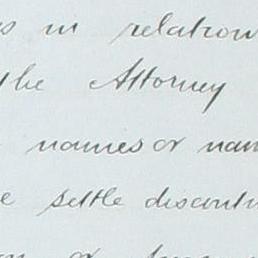 in relation
the Attorney
names or nam
settle discontin
or